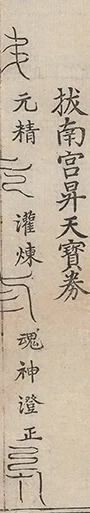 拔南宮昇天寶券
元精灌煉魂神澄正